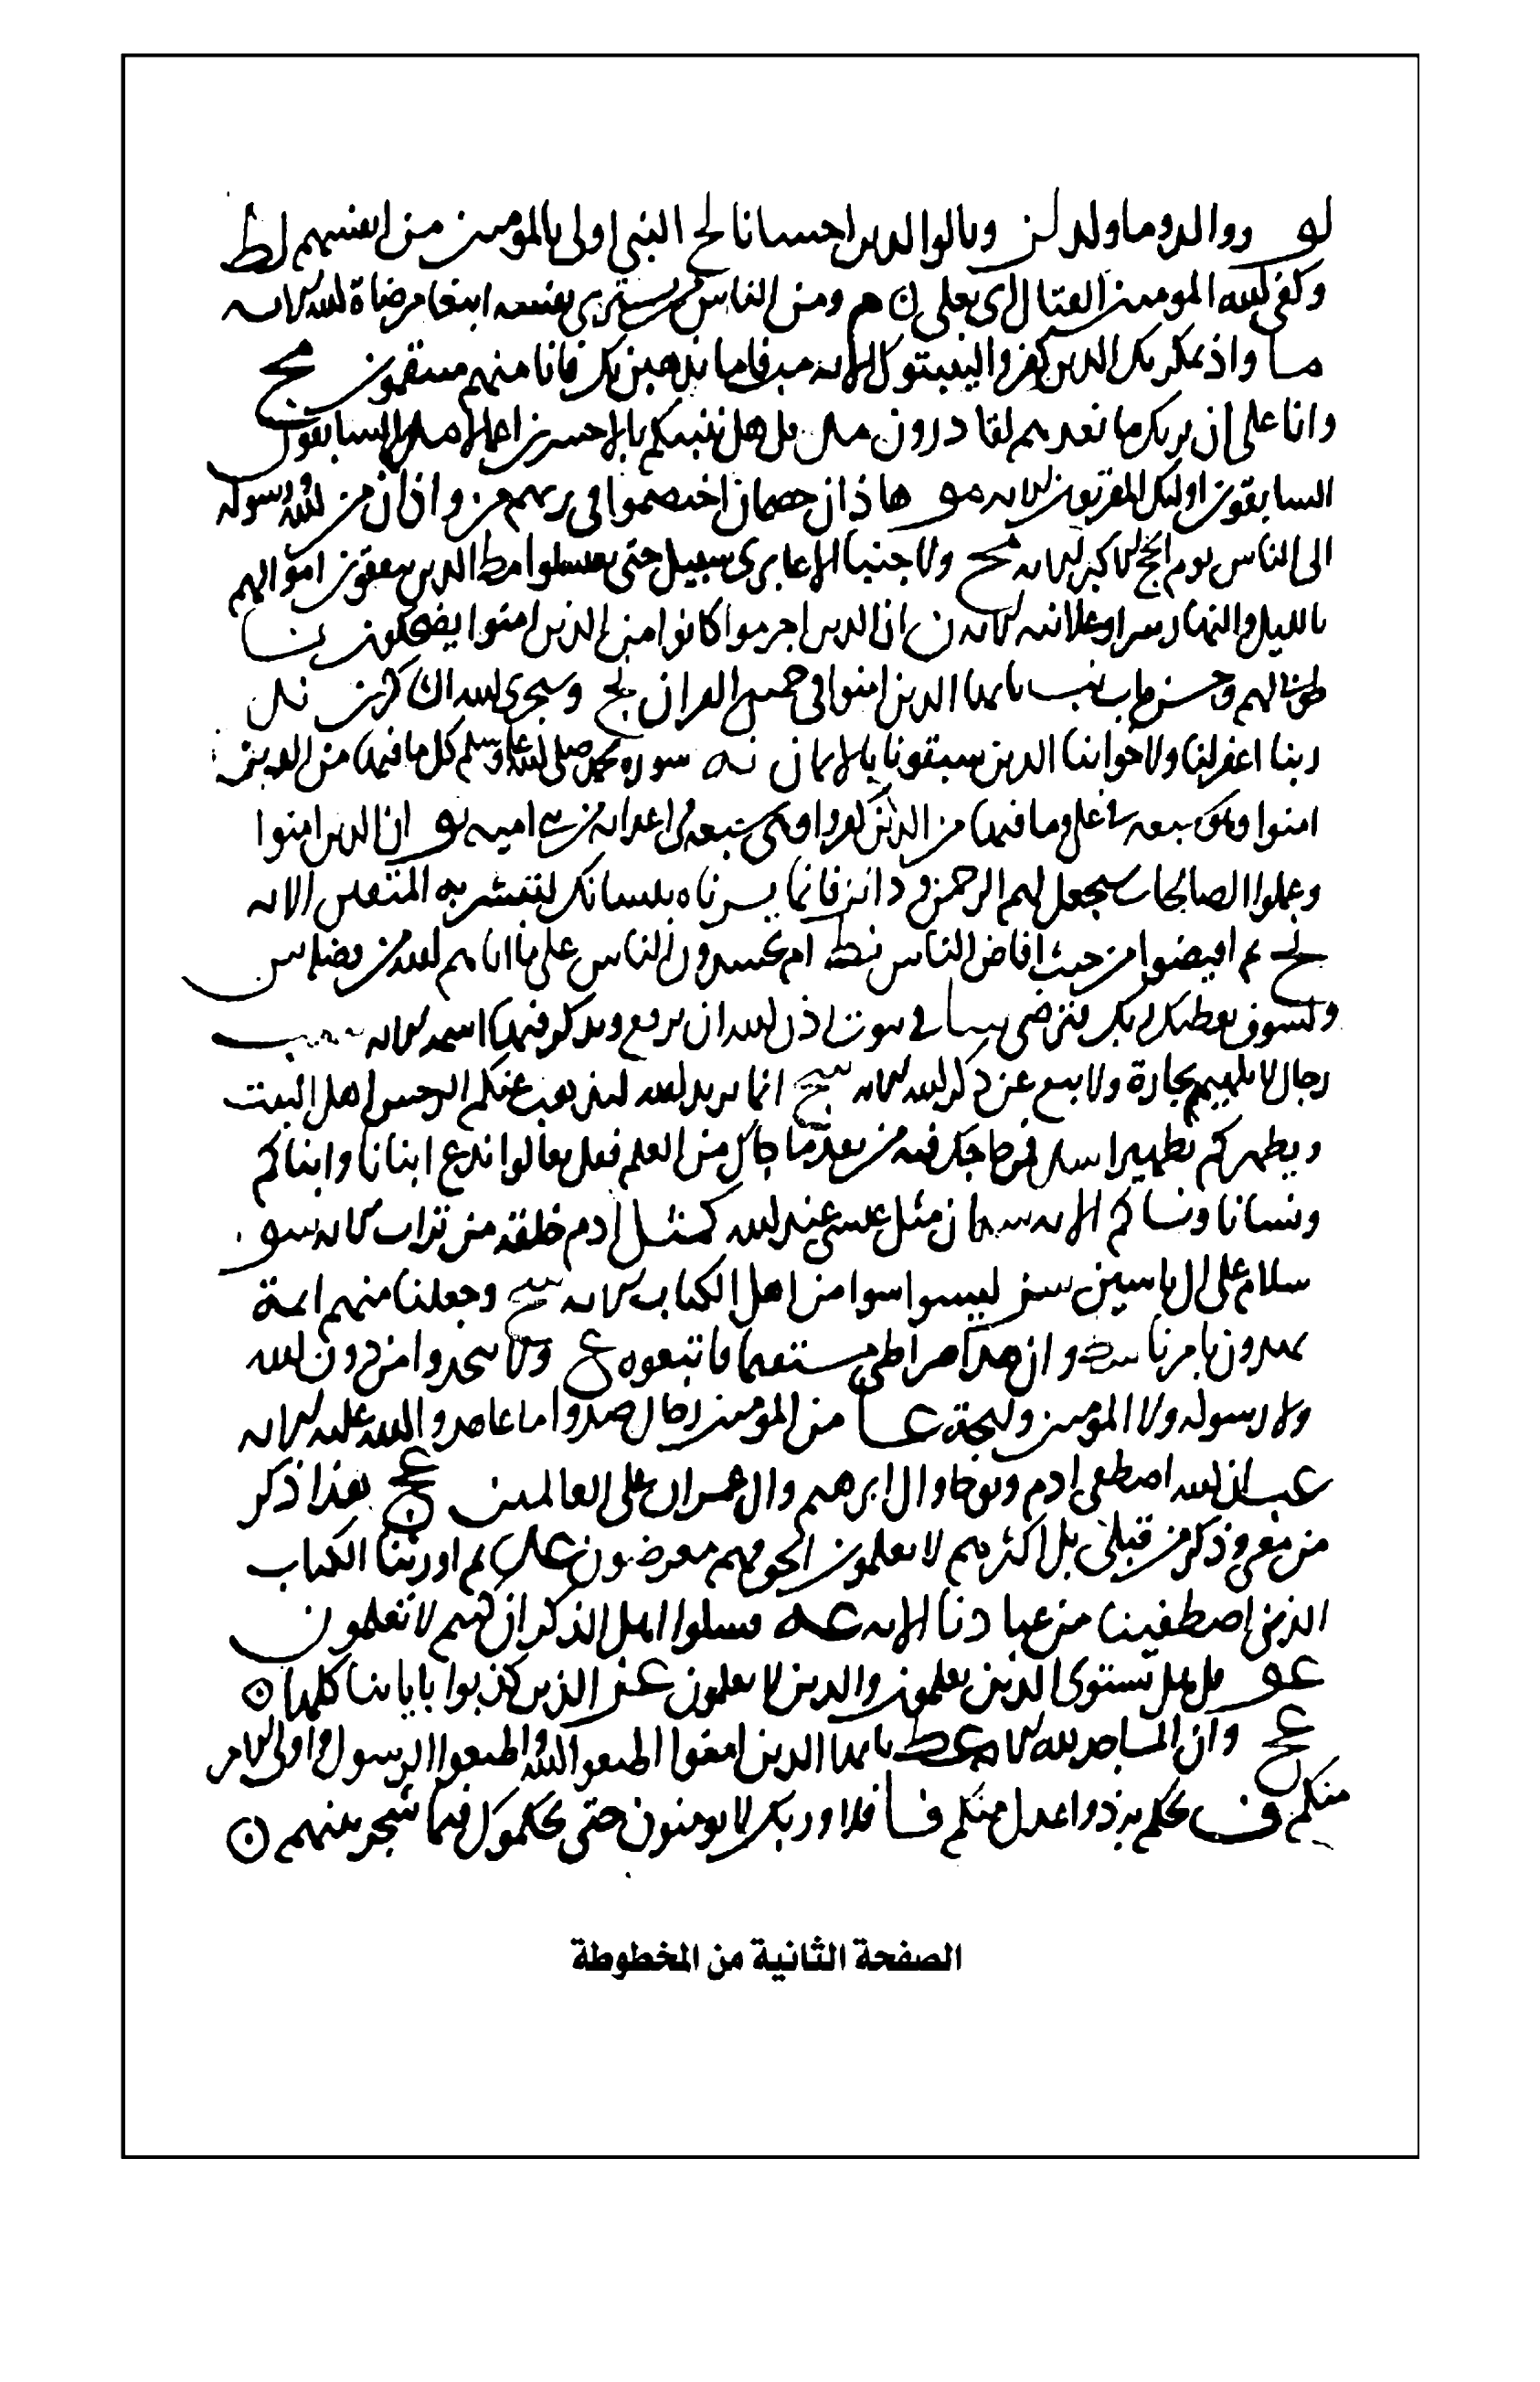 لو ووالد وما ولد لن وبالوالدين احسانا لح النبي اولى بالمومنين من انفسهم لط
وكفى الله المومنين القتال اي بعلي ن م ومن الناس من يشتري نفسه ابتغا مرضاة الله الايه
ما واذ يمكر بك الذين كفروا ليثبتوك الايه مب فاما نذهبن بك فانا منهم منتقمون مج
وانا على ان نريك ما نعدهم لقادرون قل هل ننبيكم بالاخسرين اعمالا والسابقون
السابقون اوليك المقربون الايه مو هاذان خصمان اختصموا في ربهم مز واذان من الله ورسوله
الى الناس يوم الحج الاكبر الايه مح ولا جنبا الا عابري سبيل حتى تغتسلوا مط الذين ينفقون اموالهم
بالليل والنهار سرا وعلانيه الايه ن ان الذين اجرموا كانوا من الذين امنوا يضحكون نا
طوبى لهم وحسن ماب نب يايها الذين امنوا في جميع القران نج وسيجزي الله الشاكرين ند
ربنا اغفر لنا ولاخواننا الذين سبقونا بالايمان نه سوره محمد صلى الله عليه وسلم كل ما فيها من الذين
امنوا وما فيها من الذين كفروا ان الذين امنوا
وعملوا الصالحات سيجعل لهم الرحمن ودا نز فانما يسرناه بلسانك لتبشر به المتقين الايه
نح ثم افيضوا من حيث افاض الناس نط ام يحسدون الناس على ما اتاهم الله من فضله س
ولسوف يعطيك ربك فترضى سا في بيوت اذن الله ان ترفع ويذكر فيها اسمه الايه سب
رجال لا تلهيهم تجارة ولا بيع عن ذكر الله الايه سج انما يريد الله ليذهب عنكم الرجس اهل البيت
ويطهركم تطهيرا سد فمن حاجك فيه من بعد ما جاك من العلم فقل تعالوا ندع ابنانا وابناكم
ونسانا ونساكم الايه سه ان مثل عيسى عند الله كمثل ادم خلقه من تراب الايه سو
سلام على ال ياسين سز ليسوا سوا من اهل الكتاب الايه سح وجعلنا منهم ايمة
يهدون بامرنا سط وان هذا صراطي مستقيما فاتبعوه ع ولا يتخذوا من دون الله
ولا رسوله ولا المومنين وليجة عا من المومنين رجال صدقوا ما عاهدوا الله عليه الايه
عب ان الله اصطفى ادم ونوحا وال ابرهيم وال عمران على العالمين عج هذا ذكر
من معي وذكر من قبلي بل اكثرهم لا يعلمون الحق فهم معرضون عد ثم اورثنا الكتاب
الذين اصطفينا من عبادنا الايه عه فسلوا اهل الذكر ان كنتم لا تعلمون
عو قل هل يستوي الذين يعلمون والذين لا يعلمون عز الذين كذبوا باياتنا كلها
عح وان المساجد لله الايه عط يايها الذين امنوا اطيعوا الله واطيعوا الرسول واولي الامر
منكم ف يحكم به ذوا عدل منكم فا فلا وربك لا يومنون حتى يحكموك فيما شجر بينهم
الصفحة الثانية من المخطوطة